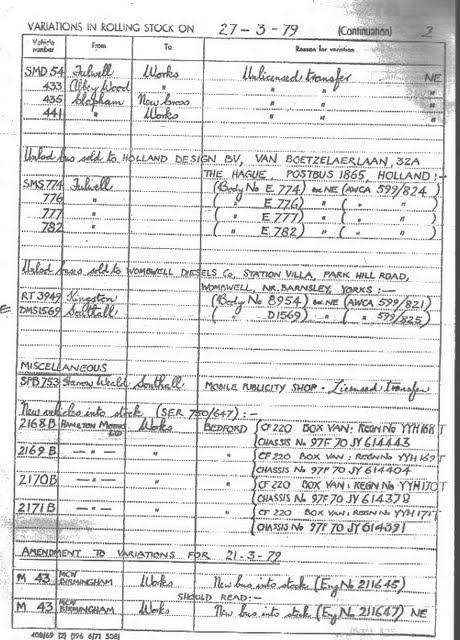 VARIATIONS IN ROLLING STOCK ON 27-3-79 (Continuation) 2
Vehicle number From To Reason for variation
SMD 54 Fulwell Works Unlicensed transfer NE
433 Abbey Wood " " " "
435 Clapham New Cross " " "
441 " Works " " "
Unlsd bus sold to HOLLAND DESIGN BV, VAN BOETZELAERLAAN, 32A
THE HAGUE, POSTBUS 1865, HOLLAND :-
SMS 774 Fulwell (Body No E.774) NE (AWCA 599/824)
776 " ( " E.776) " ( " " )
777 " ( " E.777) " ( " " )
782 " ( " E.782) " ( " " )
Unlsd buses sold to WOMBWELL DIESELS Co, STATION VILLA, PARK HILL ROAD,
WOMBWELL, NR. BARNSLEY, YORKS :-
RT 3949 Kingston (Body No 8954) NE (AWCA 599/821)
E DMS1569 Southall ( " D1569) " ( " 599/825)
MISCELLANEOUS
SPB 753 Harrow Weald Southall MOBILE PUBLICITY SHOP - Licensed transfer
New vehicles into stock (SER 750/647) :-
2168 B HAMILTON MOTORS LTD Works BEDFORD CF 220 BOX VAN: REGN No YYH 168 T
CHASSIS No 97F 70 JY 614443
2169 B — " — " " CF 220 BOX VAN: REGN No YYH 169 T
CHASSIS No 97F 70 JY 614404
2170 B — " — " " CF 220 BOX VAN: REGN No YYH 170 T
CHASSIS No 97F 70 JY 614379
2171 B — " — " " CF 220 BOX VAN: REGN No YYH 171 T
CHASSIS No 97F 70 JY 614391
AMENDMENT TO VARIATIONS FOR 21-3-79
M 43 MCW BIRMINGHAM Works New bus into stock (Eng No 211645)
SHOULD READ :-
M 43 MCW BIRMINGHAM Works New bus into stock (Eng No 211647) NE